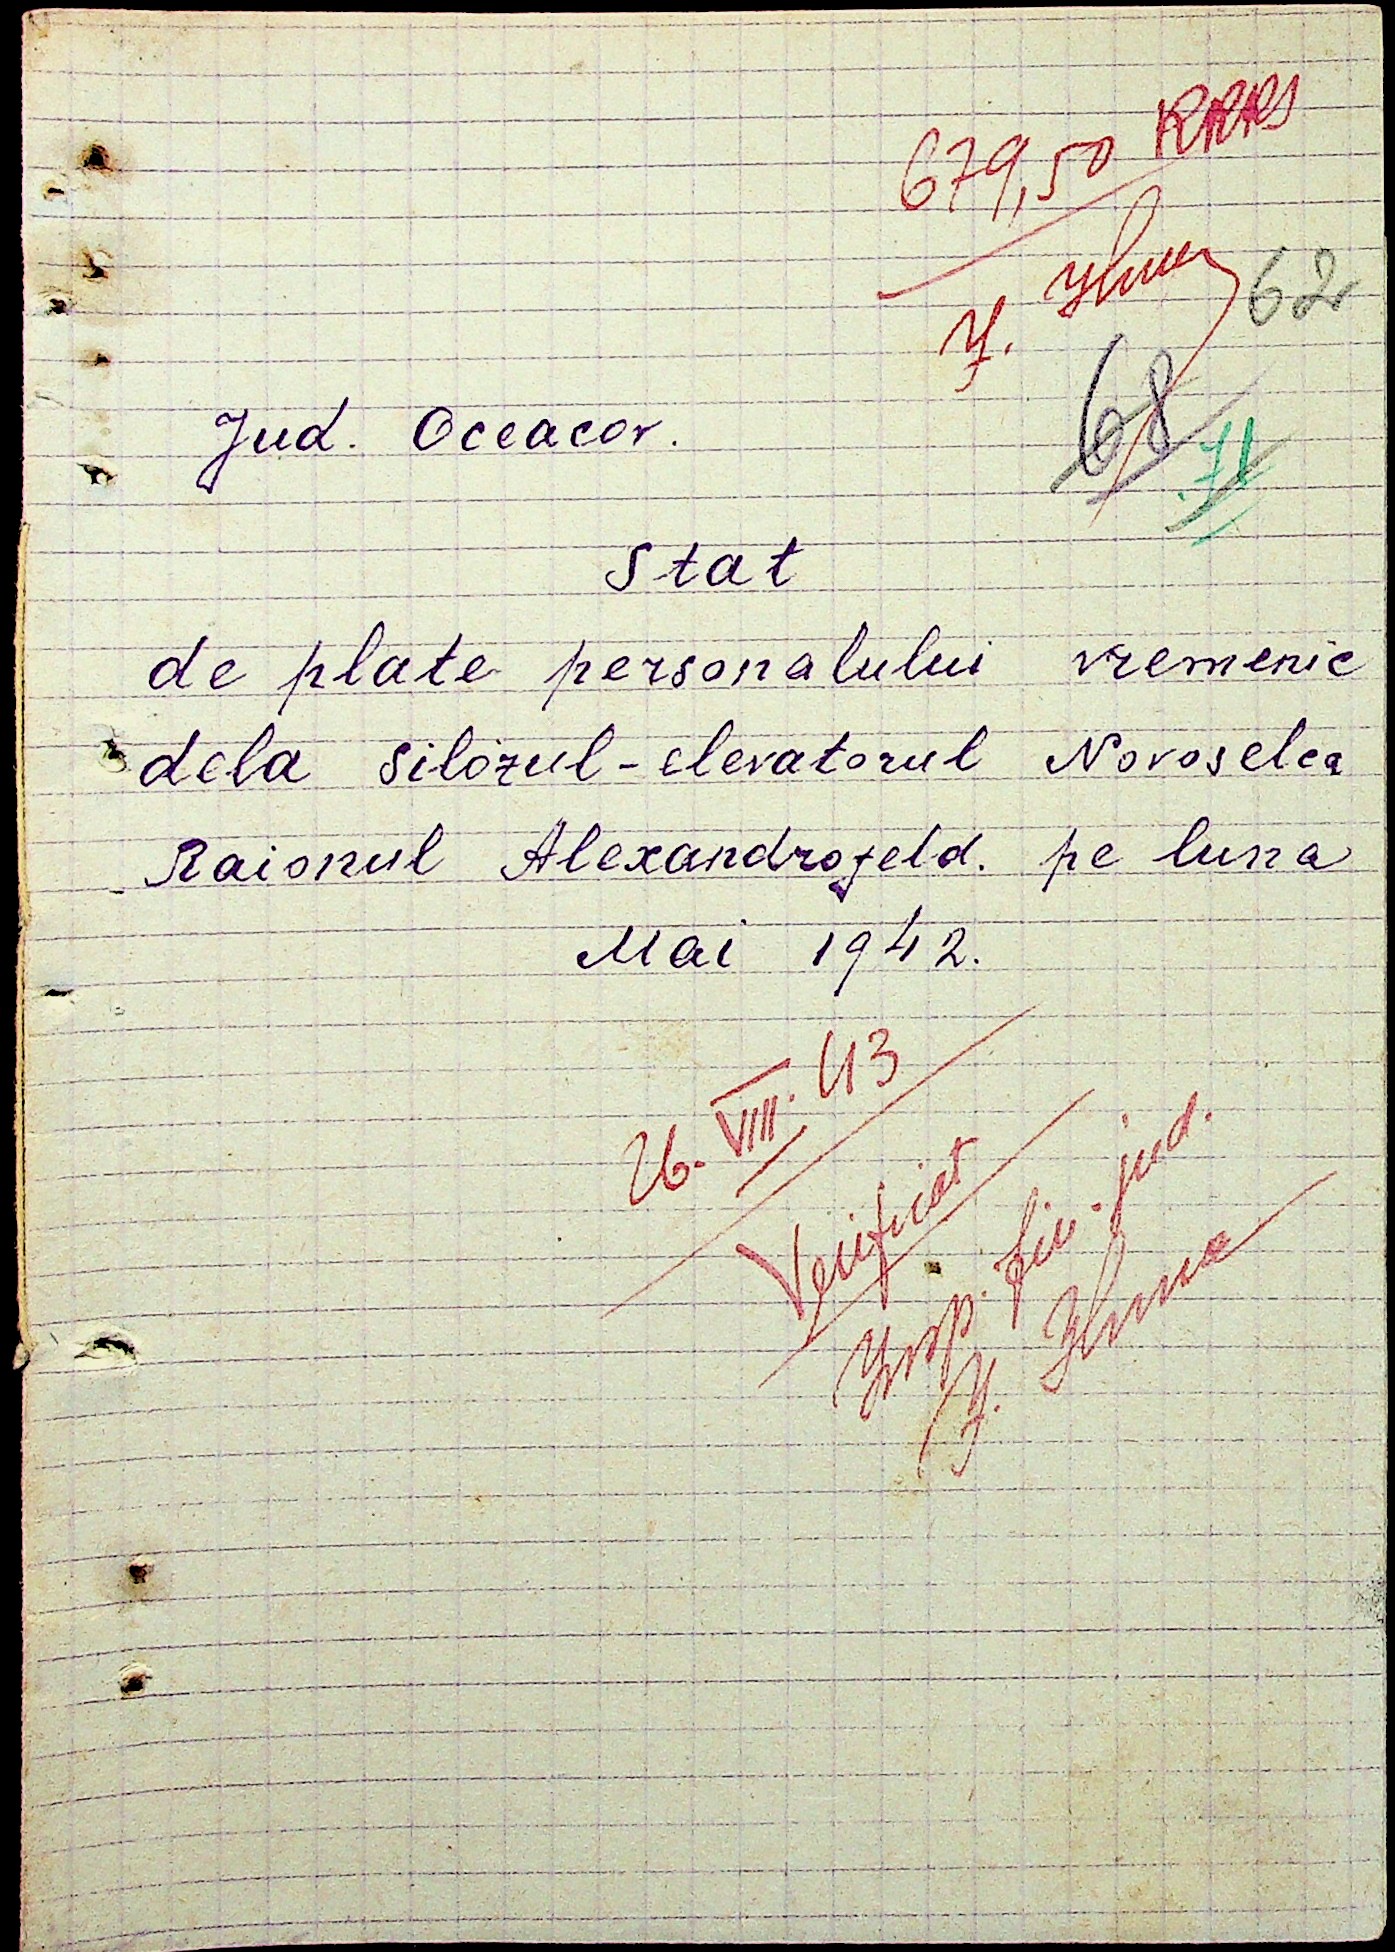 679,50
62
68
71
Jud. Oceacov.
Stat
de plate personalului vremenic
dela silozul-elevatorul Novoselca
Raionul Alexandrofeld. pe luna
Mai 1942.
26. VIII. 43
Verificat
Insp. fin. jud.